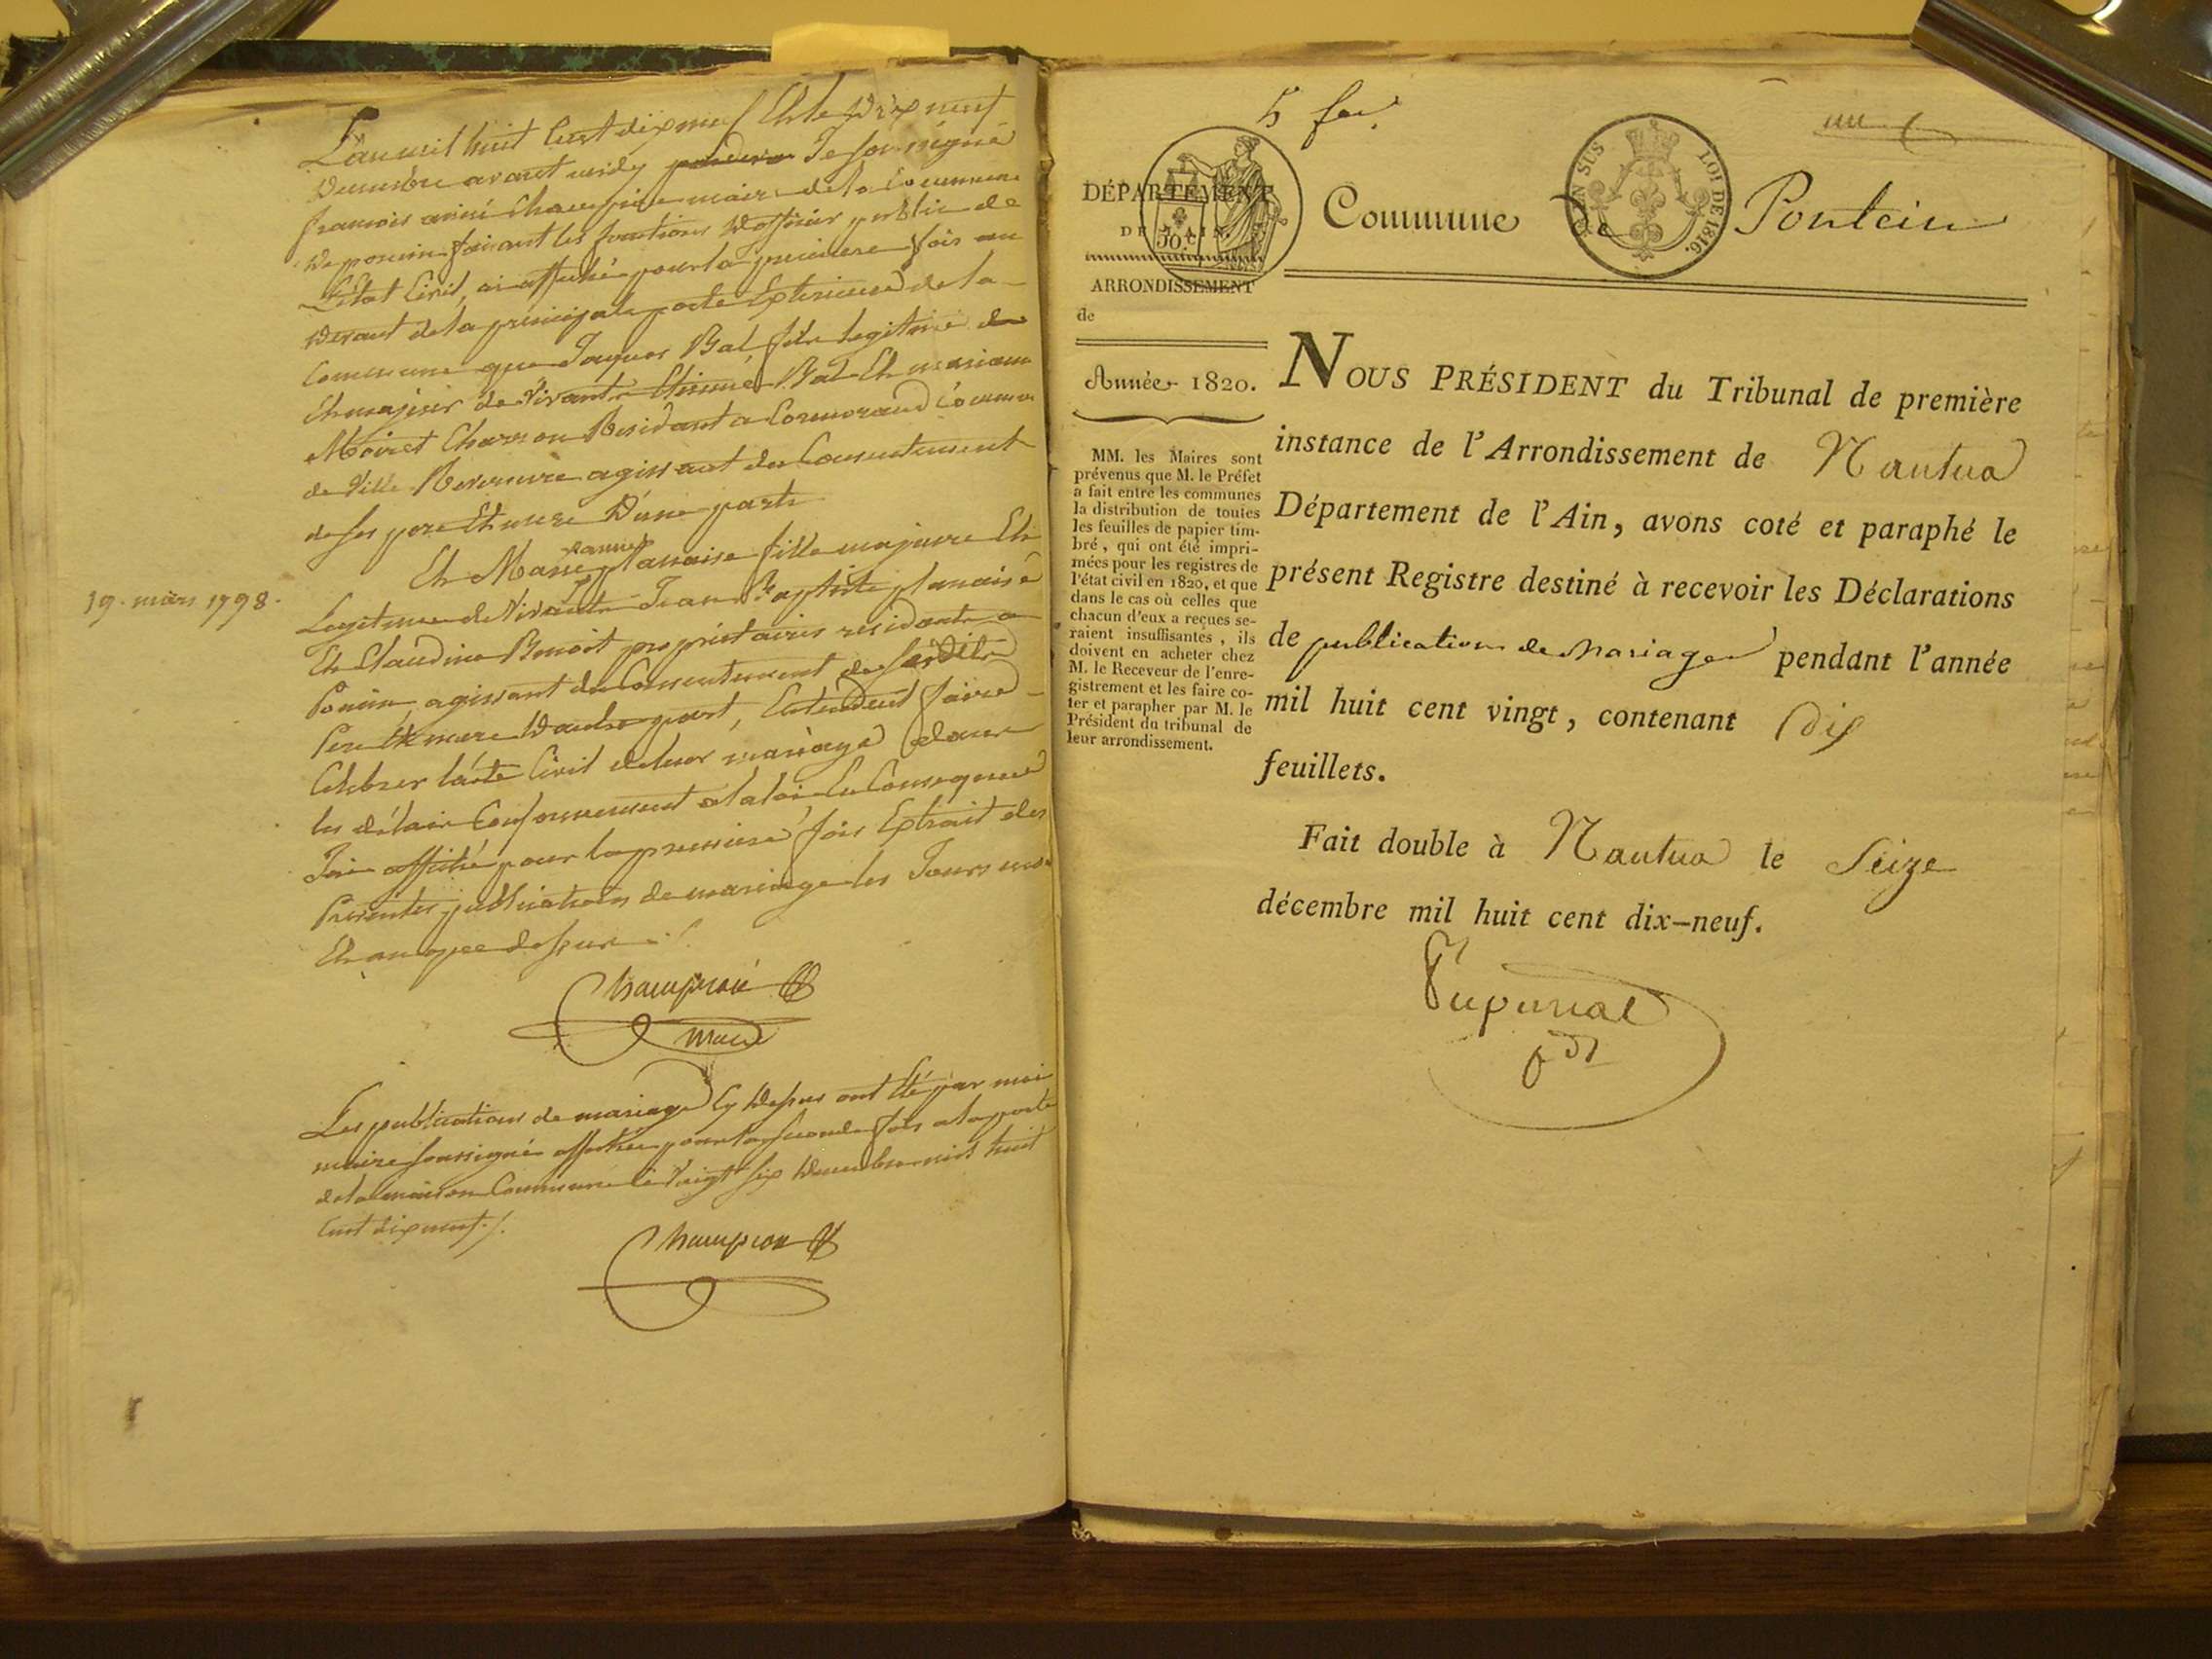 L'an mil huit Cent dix neuf Et le Dix neuf
Decembre avant midy Je Soussigné
françois aimé Champion maire de la Commune
De poncin faisant les fonctions D'officier public de
L'Etat Civil, ai affiché pour la premiere fois au
Devant de la principale porte Exterieure de la
Commune que Jaques Bal fils legitime
Et majeur de Vivants Etienne Bal Et mariane
Moiret Charron Residant a Cormorand Commune
de Ville Reversure agissant du Consentement
de ses pere Et mere D'une part
Et Marie jeanne planaise fille majeure Et
19. mars 1798.
Legitime de Vivants Jean Baptiste planaise
Et Claudine Benoit proprietaires residants a
Poncin, agissant du Consentement de ses dits
Pere Et mere D'autre part, Entendent faire
Celebrer l'acte Civil de leur mariage dans
les délais Conformement a la loi En Consequence
J'ai affiché pour la premiere fois Extrait des
Presentes publications de mariage les Jours mois
Et an que dessus
Champion
maire
Les publications de mariage Cy Dessus ont Eté par moi
maire soussigné affichées pour la seconde fois a la porte
de la maison Commune le Vingt six Decembre mil huit
Cent dix neuf ./.
Champion
5 feu.
un
DÉPARTEMENT
DE L'AIN.
50 c
ARRONDISSEMENT
de
Commune de Pontcin
EN SUS
LOI DE 1816.
Année 1820.
MM. les Maires sont
prévenus que M. le Préfet
a fait entre les communes
la distribution de toutes
les feuilles de papier tim-
bré, qui ont été impri-
mées pour les registres de
l'état civil en 1820, et que
dans le cas où celles que
chacun d'eux a reçues se-
raient insuffisantes, ils
doivent en acheter chez
M. le Receveur de l'enre-
gistrement et les faire co-
ter et parapher par M. le
Président du tribunal de
leur arrondissement.
NOUS PRÉSIDENT du Tribunal de première
instance de l'Arrondissement de Nantua
Département de l'Ain, avons coté et paraphé le
présent Registre destiné à recevoir les Déclarations
de publications de Mariages pendant l'année
mil huit cent vingt, contenant dix
feuillets.
Fait double à Nantua le Seize
décembre mil huit cent dix-neuf.